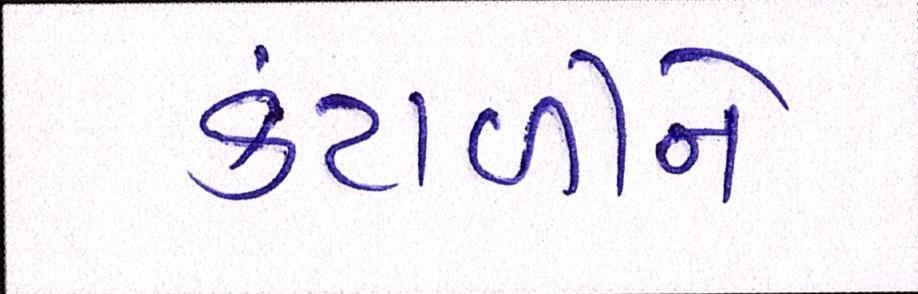 કંટાળીને